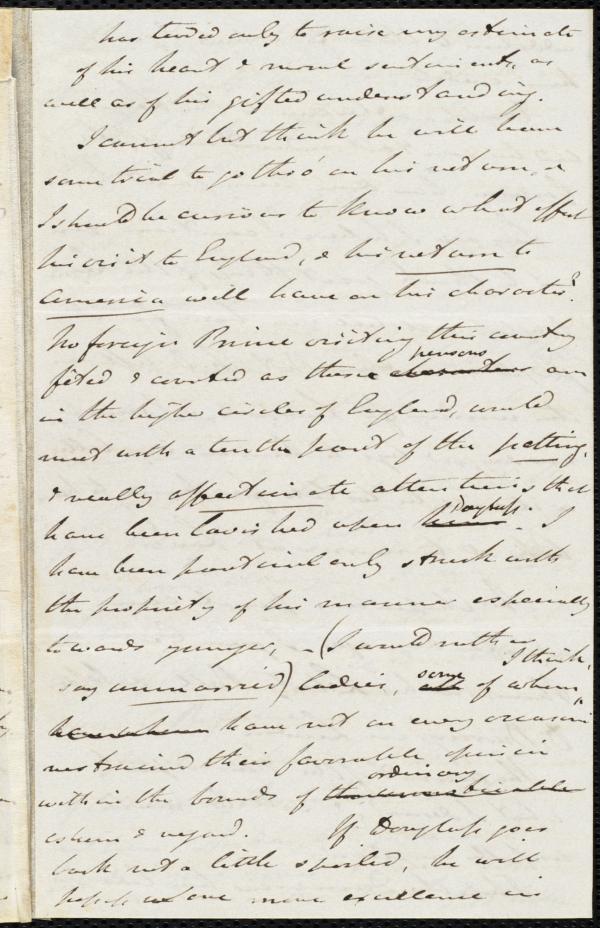 has tended only to raise my estimate
of his heart & moral sentiments, as
well as of his gifted understanding.
I cannot but think he will have
some trial to go thro' on his return, &
I should be curious to know what effect
his visit to England, & his return to
America will have on his character?
No foreign Prince visiting this country
fêted & courted as these persons are
in the higher circles of England, would
meet with a tenth part of the petting,
& really affectionate attentions that
have been lavished upon him Douglass. I
have been particularly struck with
the propriety of his manner especially
towards younger, - (I would rather
say unmarried) ladies, some of whom, I think,
have not on every occasion
restrained their favorable opinion
within the bounds of ordinary
esteem & regard. If Douglass goes
back not a little spoiled, he will
possess one more excellence in